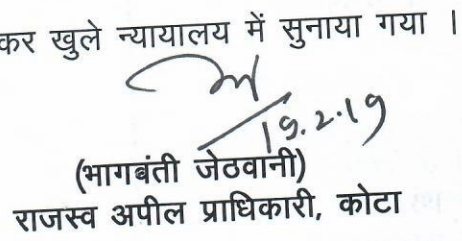 कर खुले न्यायालय में सुनाया गया ।
19.2.19
(भागबंती जेठवानी)
राजस्व अपील प्राधिकारी, कोटा